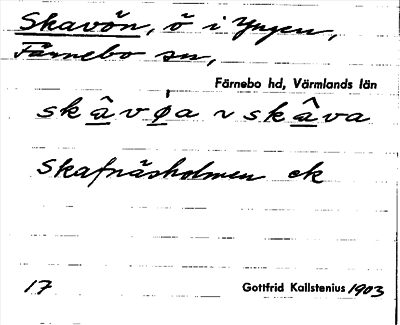 Skavön, ö i Yngen,
Färnebo sn,
Färnebo hd, Värmlands län
skâvø̍a ~ skâva
Skafnäsholmen ek
17 Gottfrid Kallstenius 1903